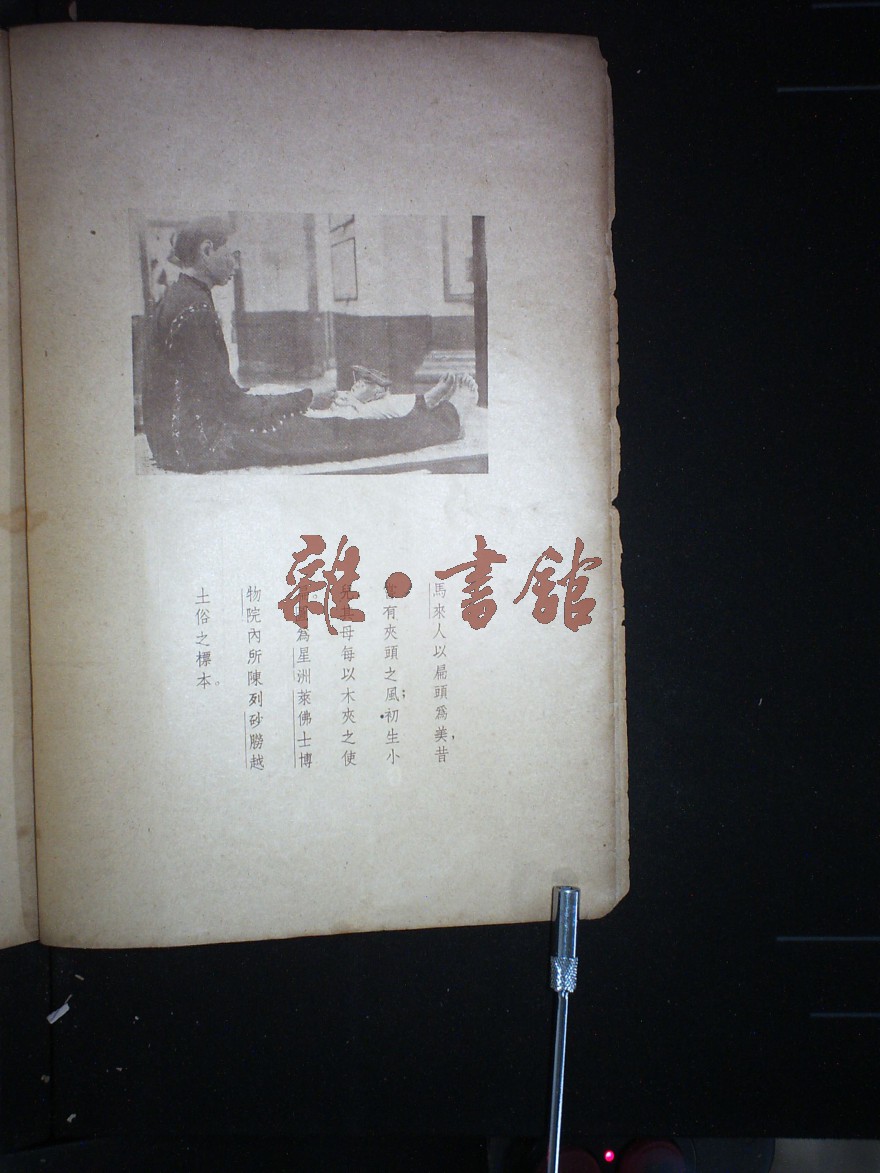 馬來人以扁頭爲美,昔
有夾頭之風;初生小
母每以木夾之使
為星洲萊佛士博
物院內所陳列砂朥越
土俗之標本。
雜·書館